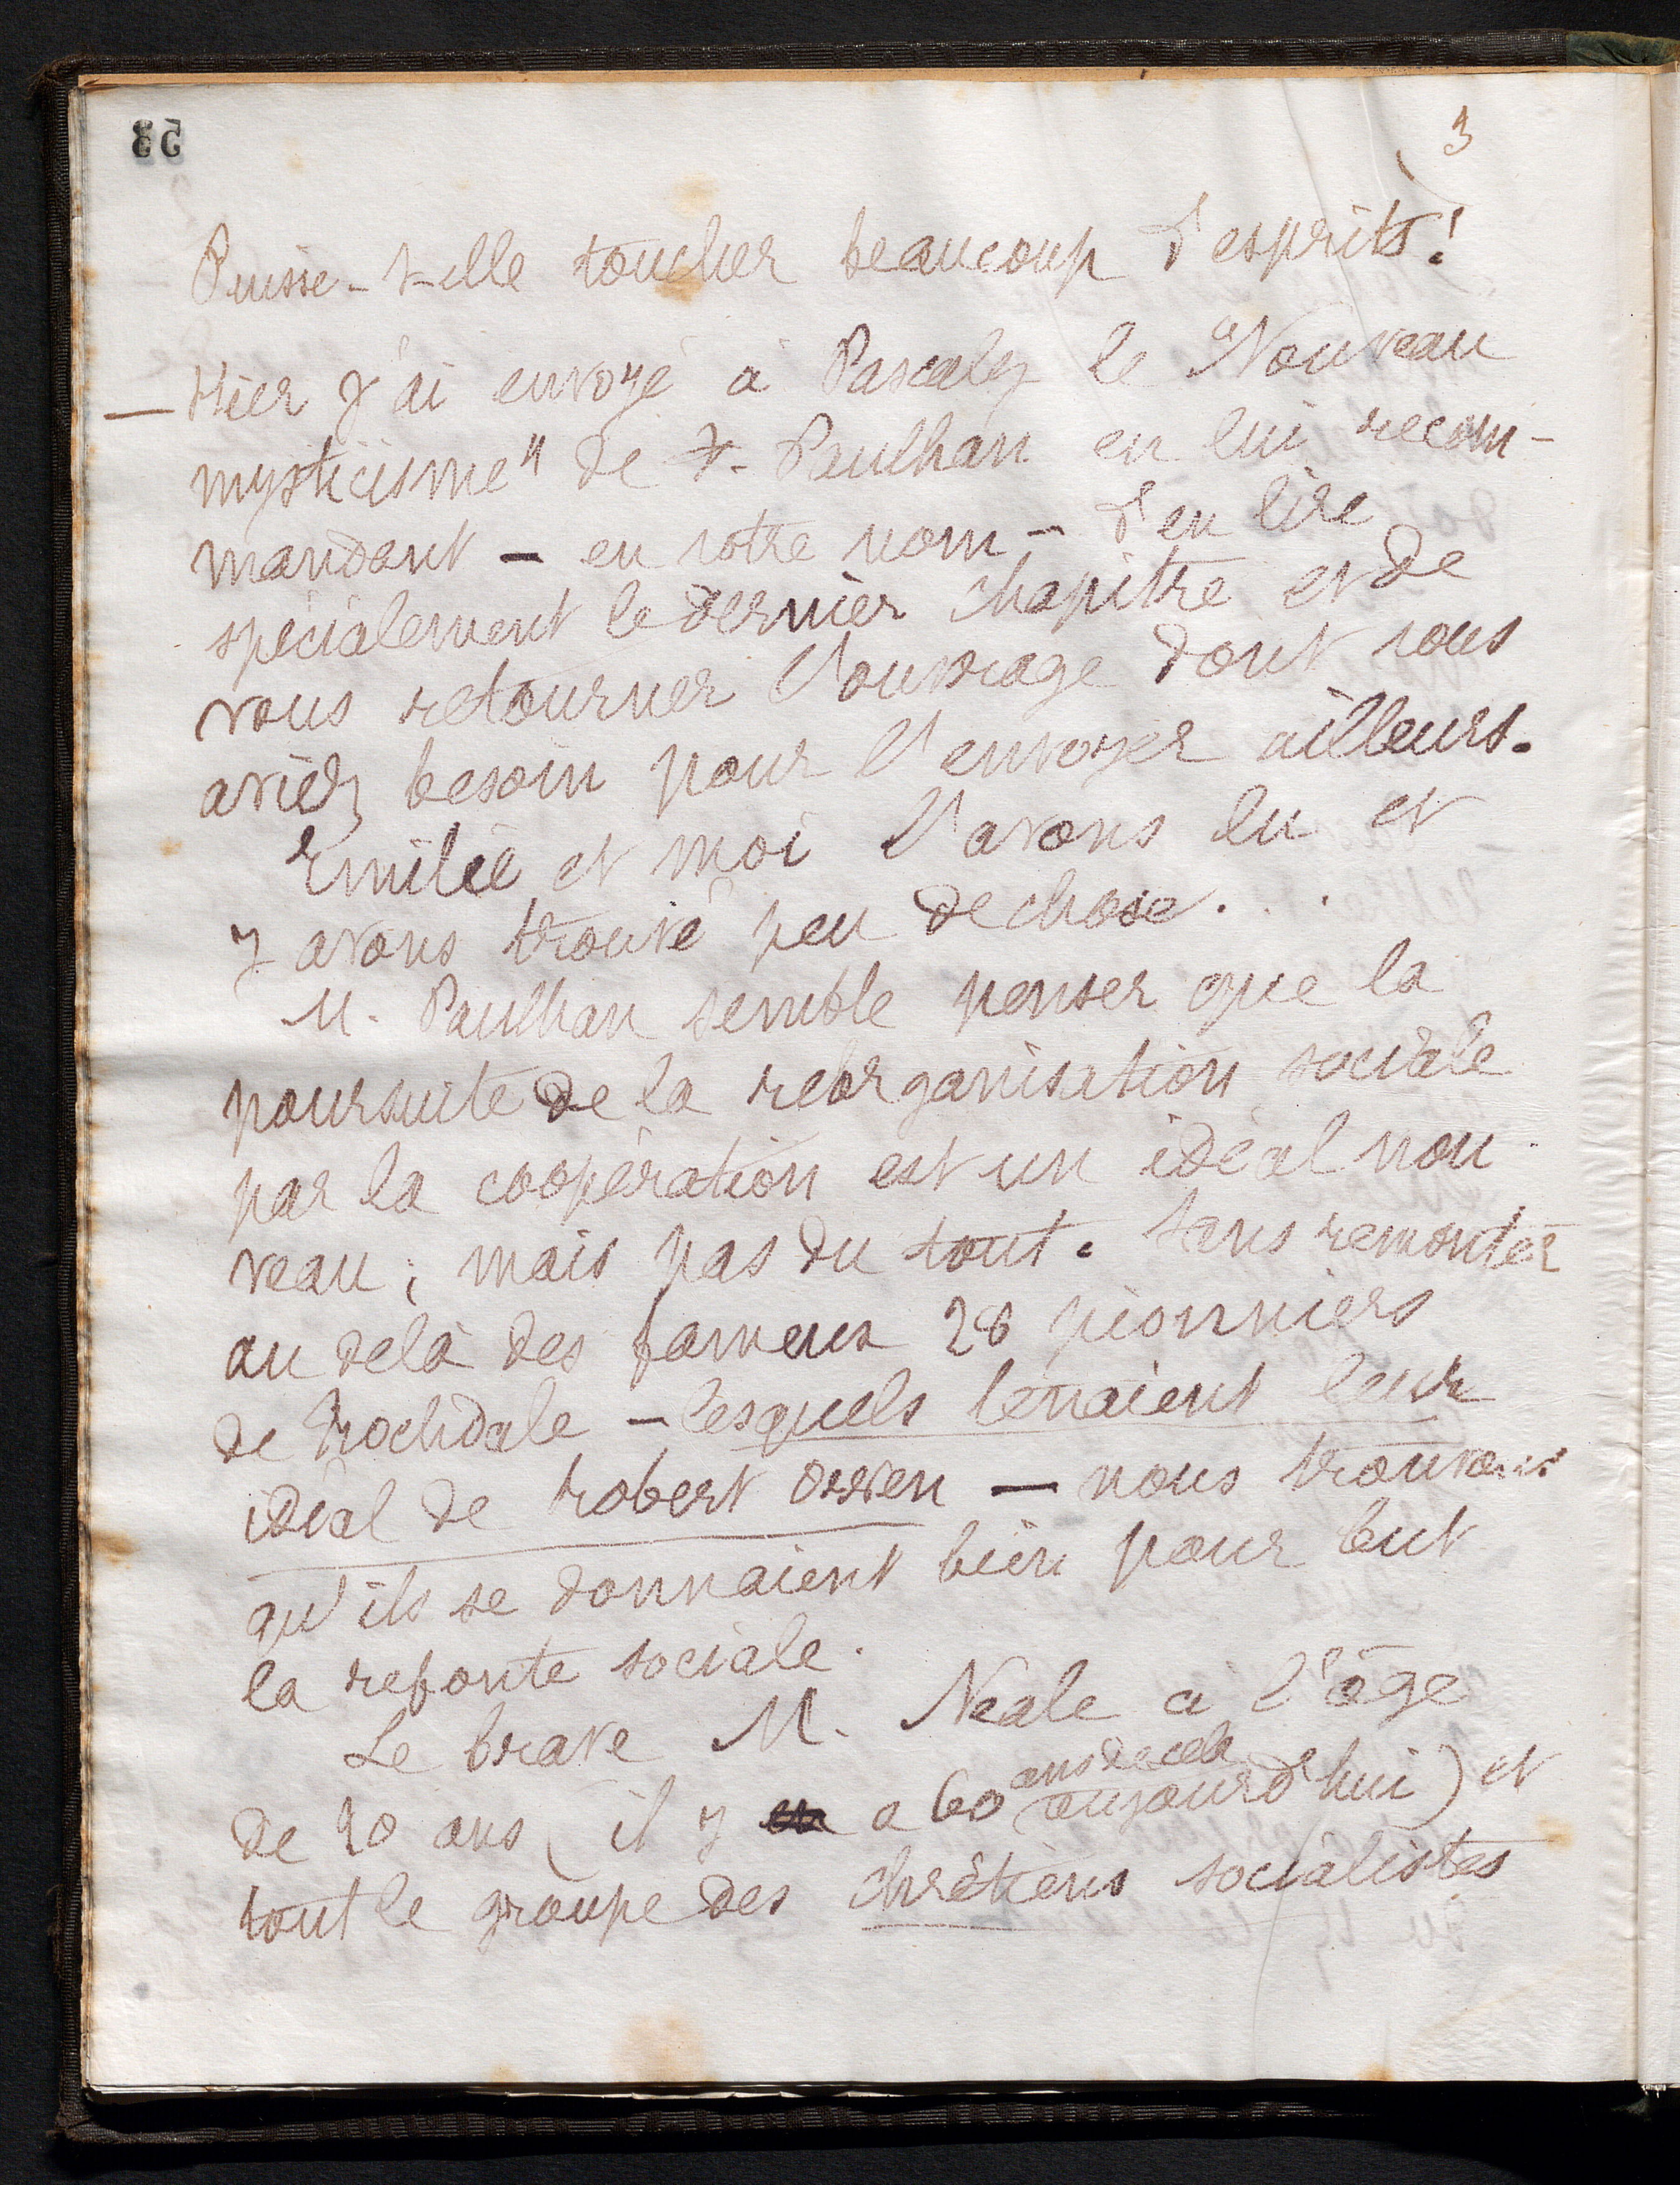 58
3
Puisse-t-elle toucher beaucoup d'esprits!
— Hier j'ai envoyé à Pascaly le "Nouveau
mysticisme" de F. Paulhan en lui recom-
mandant — en votre nom — d'en lire
spécialement le dernier chapitre et de
vous retourner l'ouvrage dont vous
aviez besoin pour l'envoyer ailleurs.
Emilie et moi l'avons lu et
y avons trouvé peu de chose...
M. Paulhan semble penser que la
poursuite de la réorganisation sociale
par la coopération est un idéal nou-
veau; mais pas du tout. Sans remonter
au delà des fameux 28 pionniers
de Rochdale — lesquels tenaient leur
idéal de Robert Owen — nous trouvons
qu'ils se donnaient bien pour but
la refonte sociale.
Le brave M. Neale à l'âge
ans de cela
de 20 ans (il y a 60 aujourd'hui) et
tout le groupe des chrétiens socialistes